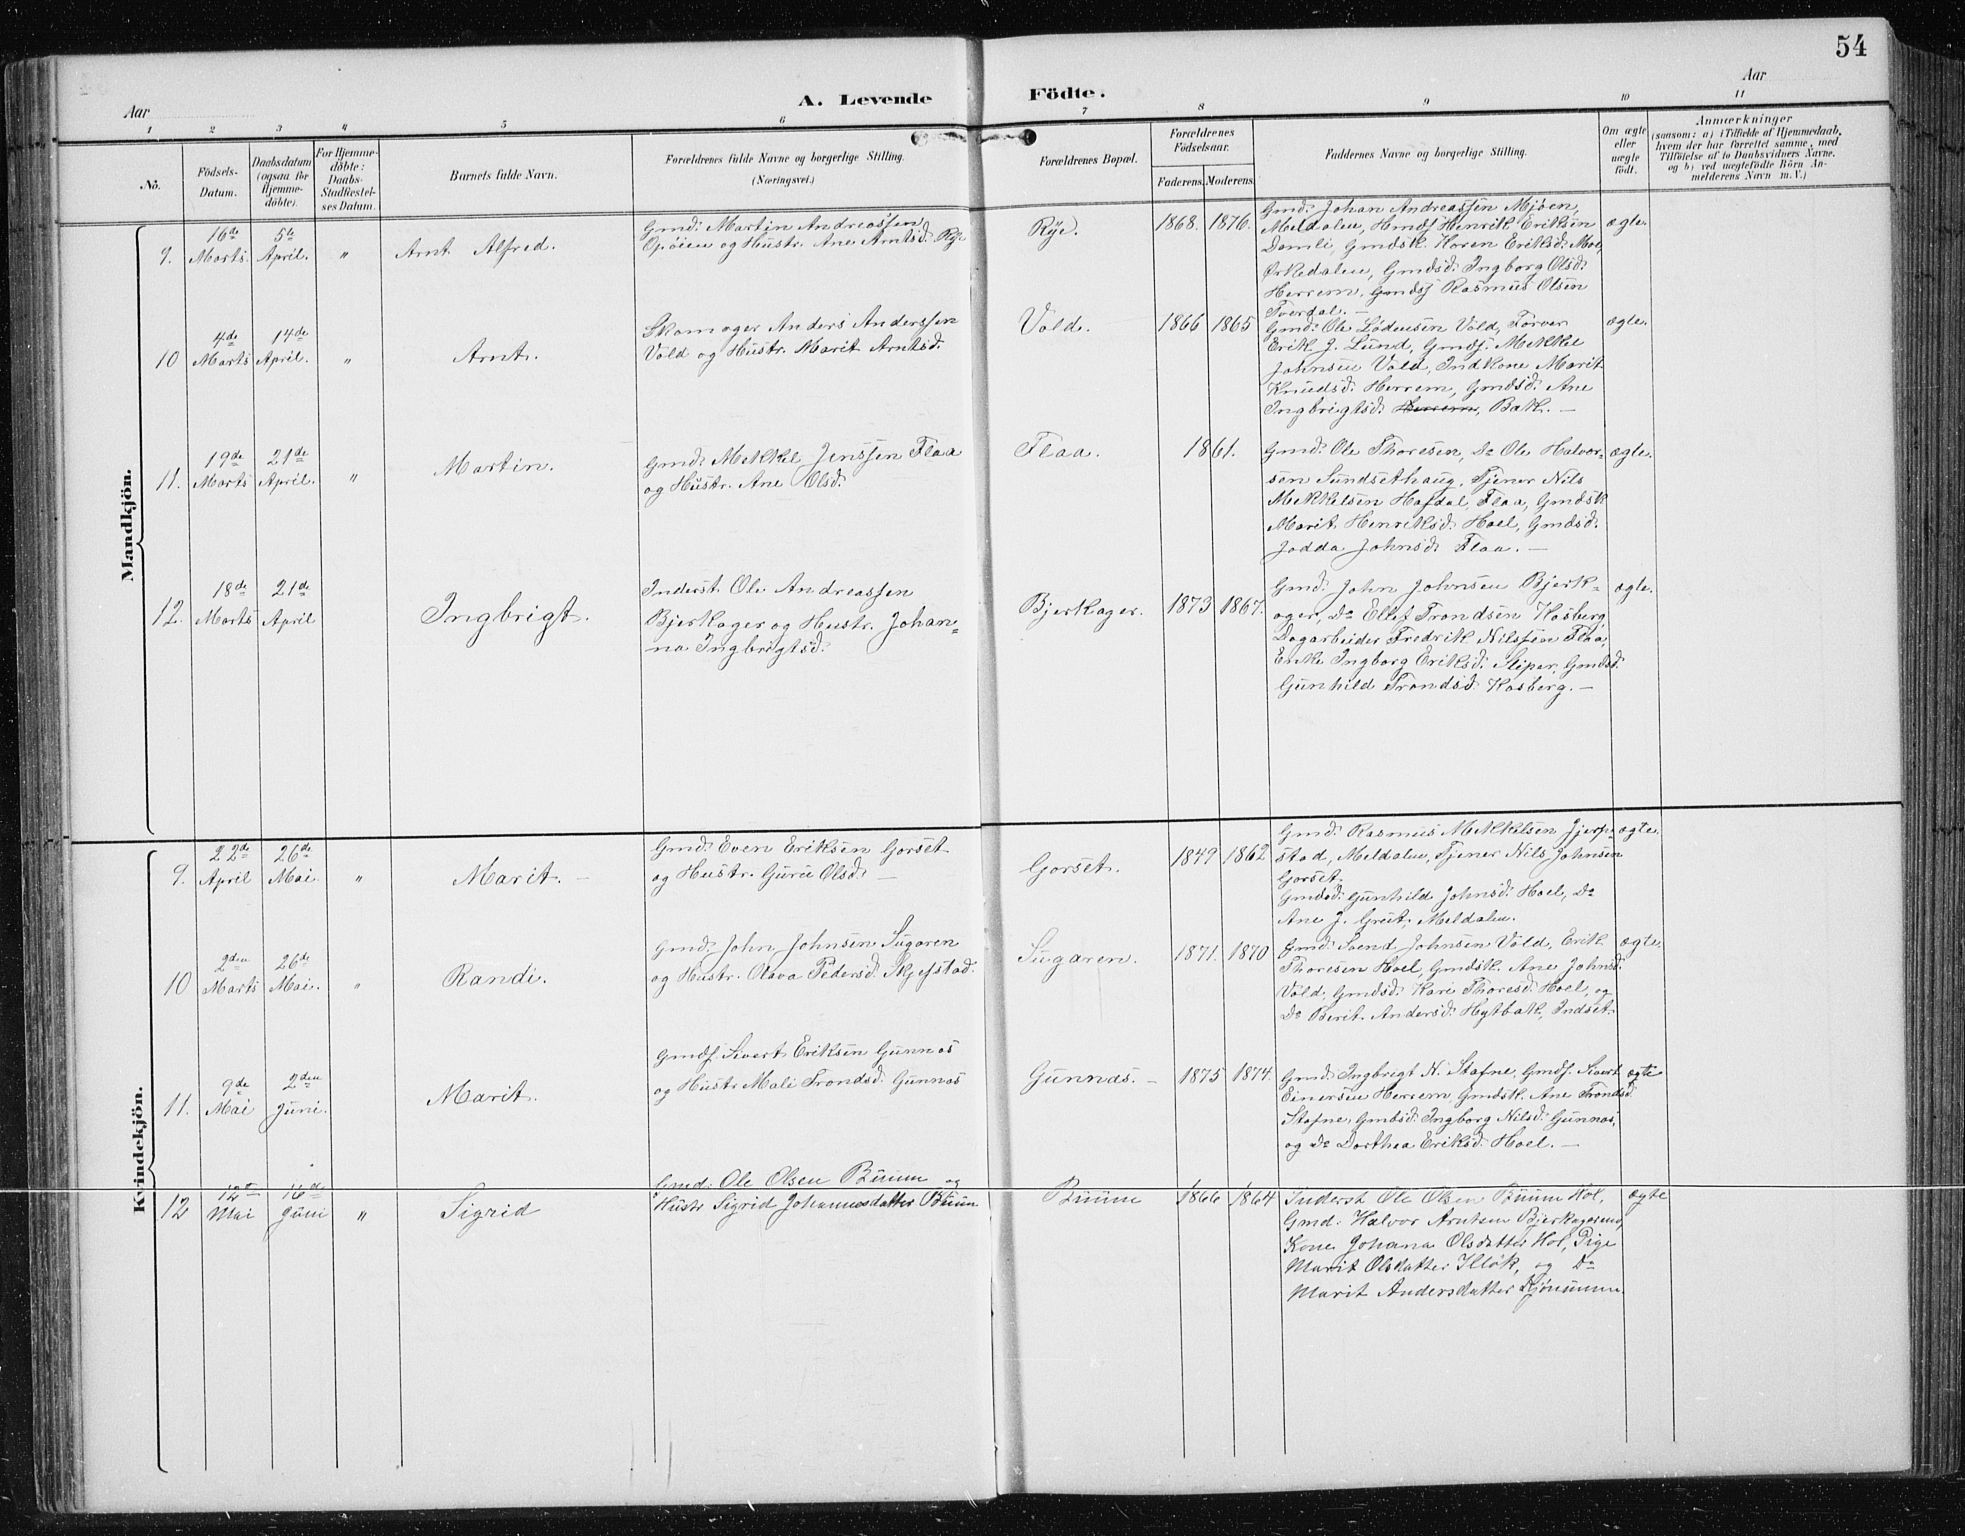 54
Aar
A. Levende Födte.
Aar
1 2 3 4 5 6 7 8 9 10 11
No.
Födsels-
Datum.
Daabsdatum
(ogsaa for
Hjemme-
döbte).
For Hjemme-
döbte:
Daabs-
Stadfæstel-
ses Datum.
Barnets fulde Navn.
Forældrenes fulde Navne og borgerlige Stilling.
(Næringsvei.)
Forældrenes Bopæl.
Forældrenes
Födselsaar.
Faderens. Moderens.
Faddernes Navne og borgerlige Stilling.
Om ægte
eller
uægte
födt.
Anmærkninger
(saasom: a) i Tilfælde af Hjemmedaab,
hvem der har forrettet samme, med
Tilföielse af to Daabsvidners Navne.
og b) ved uægtefödte Börn An-
melderens Navn m. V.)
Mandkjön.
9.
16de
Marts.
5te
April.
"
Arnt Alfred.
Gmd: Martin Andreassen
Opöien og Hustr. Ane Arntsd: Rye
Rye.
1868. 1876.
Gmd: Johan Andreassen Mjöen,
Meldalen, Gmdsk Horen Eriksd: Moe,
Örkedalen, Gmdsd: Ingborg Olsd:
Herrem, Gmdss Rasmus Olsen
Tverdal. —
ægte.
10
4de
Marts
14de
April.
"
Arnt.
Skomager Anders Anderssen
Vold og Hustr. Marit Arntsd:
Vold.
1866 1865
Gmd: Ole Lödensen Vold, Farver
Erik J. Lund, Gmds. Mekkel
Johnsen Vold, Indkone Marit
Knudsd: Herrem, Gmdsd: Ane
Ingbrigtsd: Herrem, Bak. —
ægte.
11.
19de
Marts
21de
April.
"
Martin.
Gmd: Mekkel Jenssen Flaa
og Hustr. Ane Olsd:
Flaa.
1861.
Gmd: Ole Thoresen, Do Ole Halvor-
sen Sundsethaug, Tjener Nils
Mekkelsen Hafdal, Flaa, Gmdsk
Marit Henriksd: Hoel, Gmdsd:
Jodda Johnsd: Flaa. —
ægte.
12.
18de
Marts
21de
April
Ingbrigt.
Inderst Ole Andreassen
Bjerkager og Hustr. Johan=
na Ingbrigtsd:
Bjerkager.
1873 1867.
Gmd: John Johnsen Bjerk-
ager, Do Ellef Trondsen Kosberg,
Dagarbeider Fredrik Nilssen Flaa,
Enke Ingborg Eriksd: Sliper, Gmdsd:
Gunhild Trondsd: Kosberg. —
ægte.
Kvindekjön.
9.
22de
April
26de
Mai.
"
Marit. —
Gmd: Even Eriksen Gorset
og Hustr. Guru Olsd: —
Gorset.
1849 1862
Gmd: Rasmus Mekkelsen Jjerp-
stad, Meldalen, Tjener Nils Johnsen
Gorset.
Gmdsd: Gunhild Johnsd: Hoel, Do
Ane J. Grut, Meldalen.
ægte.
10
2den
Marts
26de
Mai.
"
Randi.
Gmd: John Johnsen Sugaren
og Hustr. Olava Pedersd: Skjefstad.
Sugaren.
1871. 1870
Gmd: Svend Johnsen Vold, Erik
Thoresen Hoel, Gmdsk. Ane Johnsd:
Vold, Gmdsd: Kari Thoresd: Hoel, og
Do Berit Andersd: Hytbak, Indset.
ægte.
11.
9de
Mai
2den
Juni.
Marit.
Gmds. Sivert Eriksen Gunnes
og Hustr. Mali Trondsd: Gunnes
Gunnæs. —
1875 1874.
Gmd: Ingbrigt N. Stafne, Gmds. Sivert
Einersen Herrem, Gmdsk. Ane Trondsd:
Stafne, Gmdsd: Ingborg Nilsd: Gunnes,
og Do Dorthea Eriksd: Hoel. —
ægte
12
12te
Mai
16de
Juni
"
Sigrid
Gmd: Ole Olsen Buum og
Hustr Sigrid Johannesdatter Buum
Buum
1866 1864
Inderst Ole Olsen Buum Hol,
Gmd: Halvor Arntsen Bjerkagerend,
Kone Johana Olsdatter Hol, Pige
Marit Olsdatter Illök, og Do
Marit Andersdatter
ægte